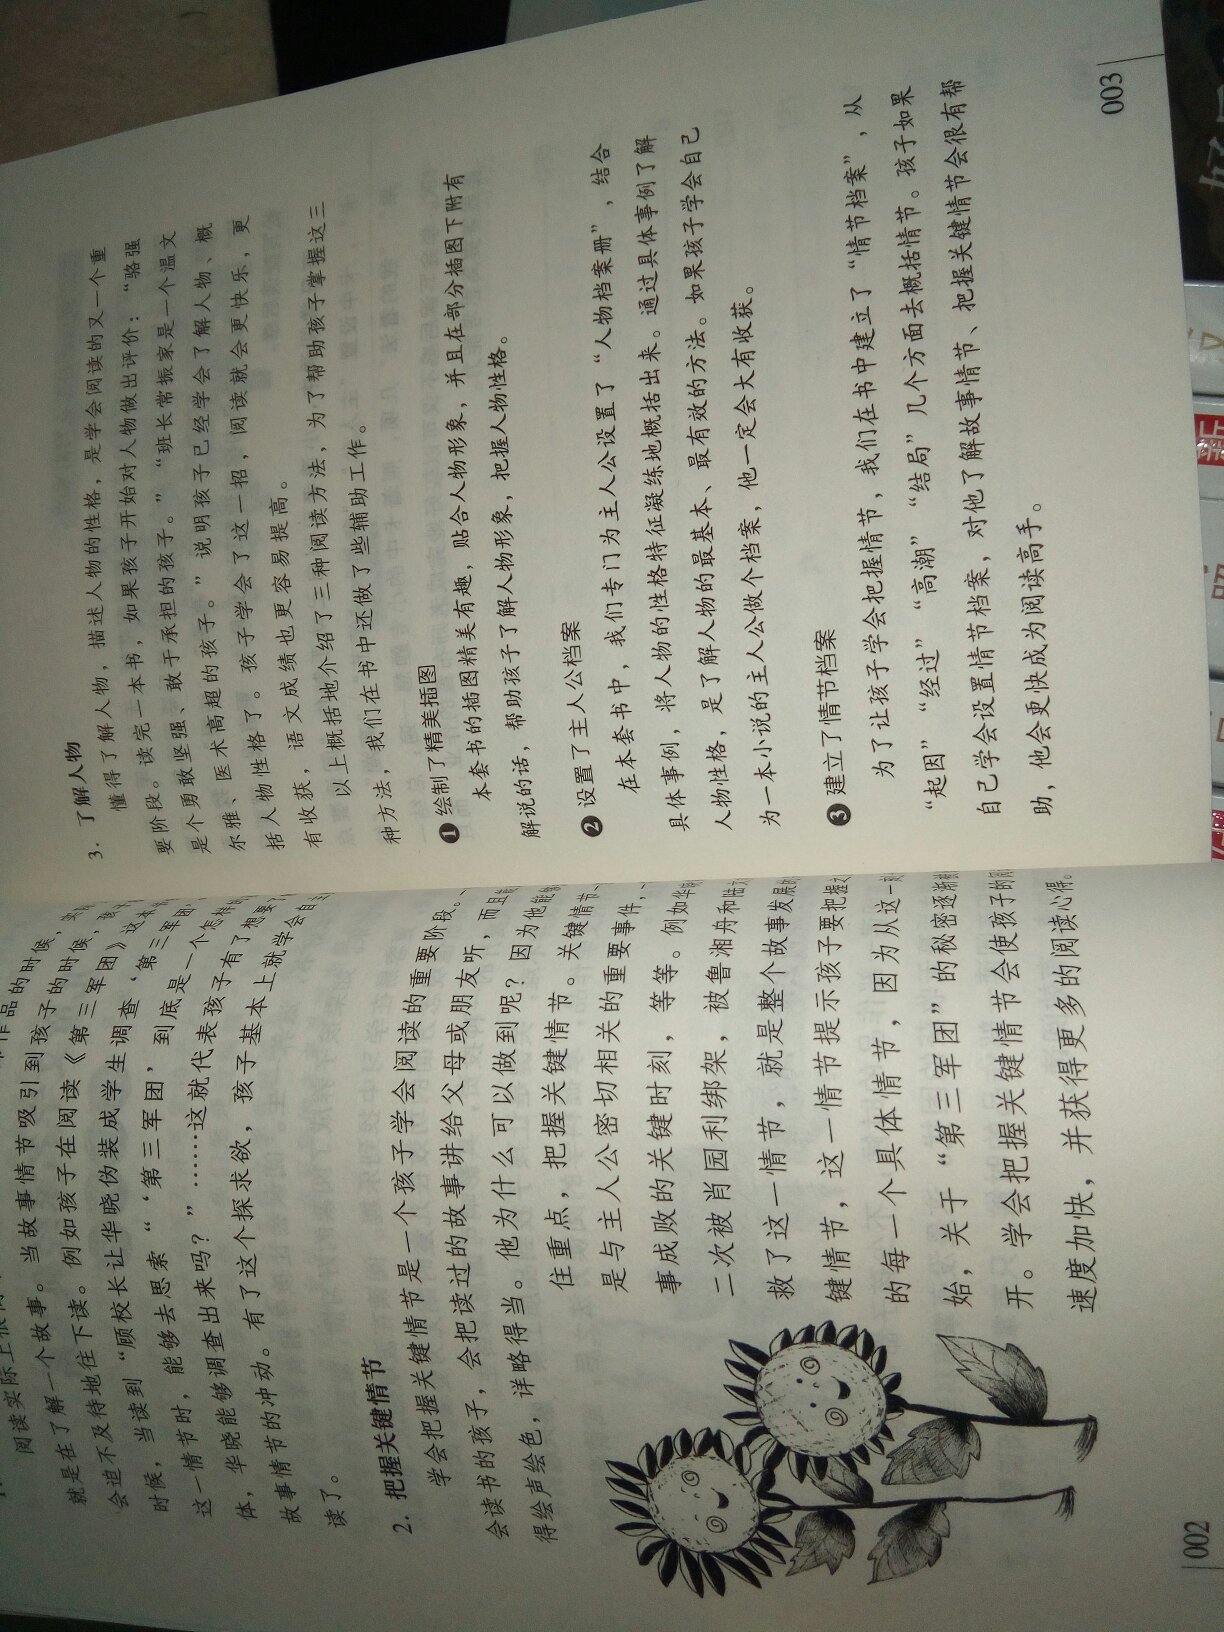 阅读实际上
就是在了解一个故事。当故事情节吸引到孩子的时候，
会迫不及待地往下读。例如孩子在阅读《第三军团》
时候，当读到“顾校长让华晓伪装成学生调查‘第三军团
这一情节时，能够去思索“‘第三军团，到底是一个怎样的
体，华晓能够调查出来吗？”……这就代表孩子有了想要了
故事情节的冲动。有了这个探求欲，孩子基本上就学会
读了。
2. 把握关键情节
学会把握关键情节是一个孩子学会阅读的重要阶段。
会读书的孩子，会把读过的故事讲给父母或朋友听，而且
得绘声绘色，详略得当。他为什么可以做到呢？因为他能够
住重点，把握关键情节。关键情节
是与主人公密切相关的重要事件，
事成败的关键时刻，等等。例如华
二次被肖园利绑架，被鲁湘舟和陆
救了这一情节，就是整个故事发展
键情节，这一情节提示孩子要把握
的每一个具体情节，因为从这一
始，关于“第三军团”的秘密逐渐
开。学会把握关键情节会使孩子的
速度加快，并获得更多的阅读心得。
002
3. 了解人物
懂得了解人物，描述人物的性格，是学会阅读的又一个重
要阶段。读完一本书，如果孩子开始对人物做出评价：“骆强
是个勇敢坚强、敢于承担的孩子。”“班长常振家是一个温文
尔雅、医术高超的孩子。”说明孩子已经学会了解人物、概
括人物性格了。孩子学会了这一招，阅读就会更快乐，更
有收获，语文成绩也更容易提高。
以上概括地介绍了三种阅读方法，为了帮助孩子掌握这三
种方法，我们在书中还做了些辅助工作。
❶ 绘制了精美插图
本套书的插图精美有趣，贴合人物形象，并且在部分插图下附有
解说的话，帮助孩子了解人物形象，把握人物性格。
❷ 设置了主人公档案
在本套书中，我们专门为主人公设置了“人物档案册”，结合
具体事例，将人物的性格特征凝练地概括出来。通过具体事例了解
人物性格，是了解人物的最基本、最有效的方法。如果孩子学会自己
为一本小说的主人公做个档案，他一定会大有收获。
❸ 建立了情节档案
为了让孩子学会把握情节，我们在书中建立了“情节档案”，从
“起因”“经过”“高潮”“结局”几个方面去概括情节。孩子如果
自己学会设置情节档案，对他了解故事情节、把握关键情节会很有帮
助，他会更快成为阅读高手。
003